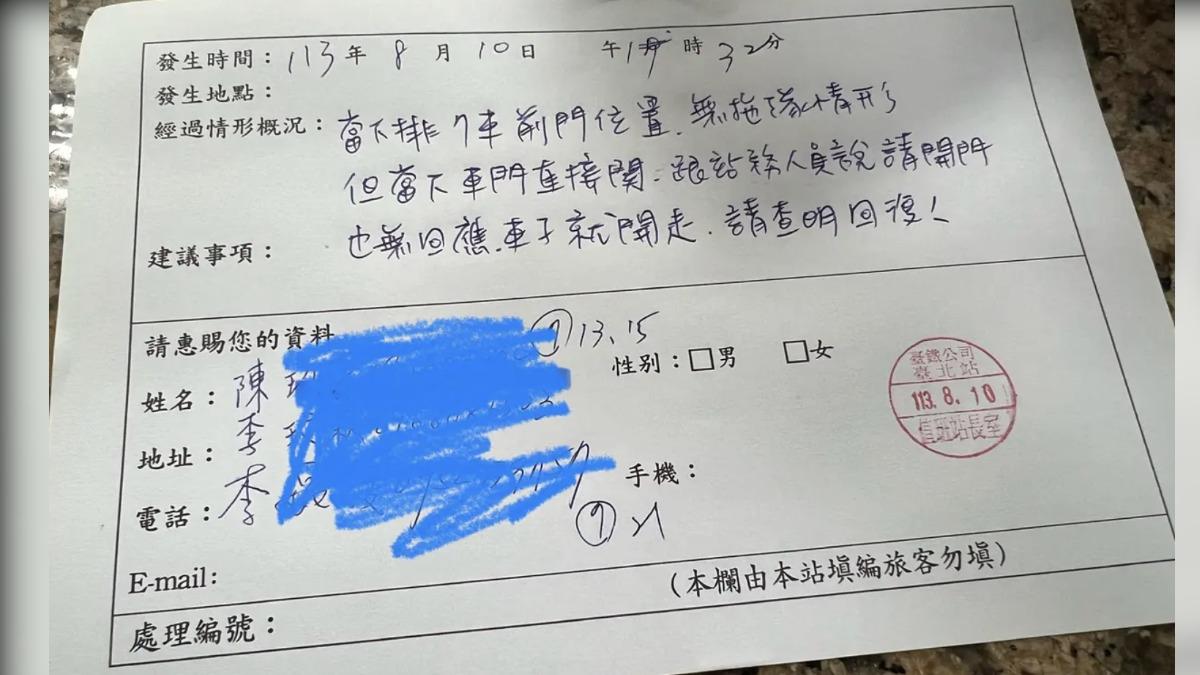 發生時間：113年 8 月 10日 午1時 32分
發生地點：
經過情形概況：當下排7車前門位置.無拖隊情形
但當下車門直接關.跟站務人員說請開門
也無回應.車子就開走.請查明回復！
建議事項：
請惠賜您的資料
⑦13.15
姓名：陳
性別：□男 □女
地址：李
電話：李
手機：
⑦21
E-mail：
（本欄由本站填編旅客勿填）
處理編號：
臺鐵公司
臺北站
113.8.10
值班站長室